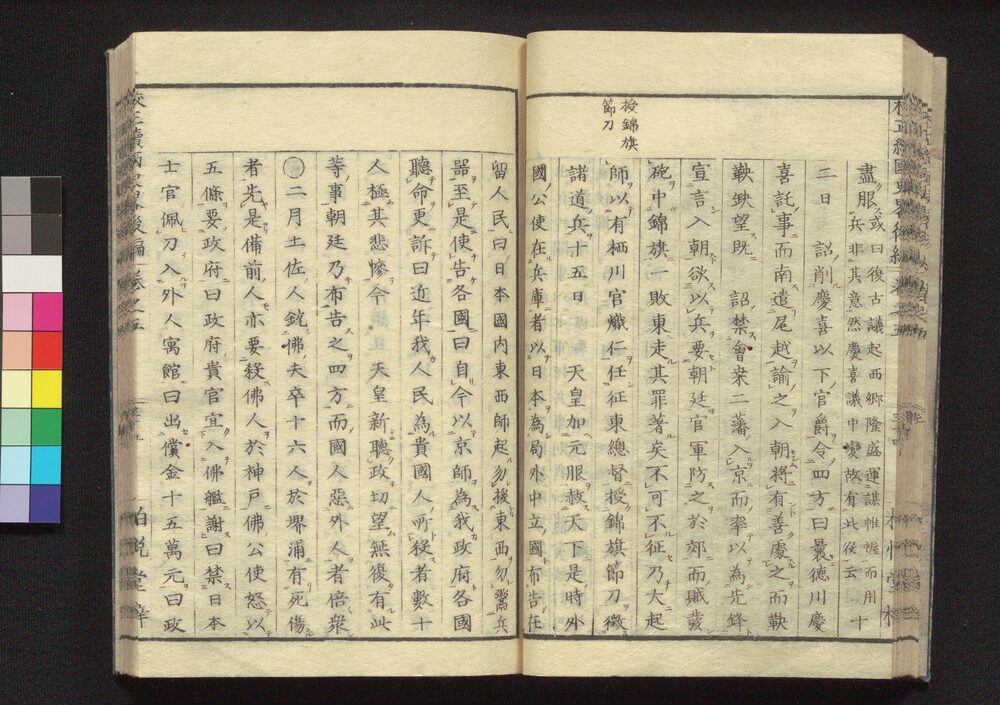 授錦旗
節刀
盡服或曰復古議起西郷隆盛運謀帷幄而用
兵非其意然慶喜議中變故有此役云十
二日 詔削慶喜以下官爵令四方曰曩德川慶
喜託事而南遣尾越諭之入朝將有善處之而鞅
鞅怏望既 詔禁會桒二藩入京而率以為先鋒
宣言入朝欲以兵要朝廷官軍防之於郊而賊發
砲中錦旗一敗東走其罪著矣不可不征乃大起
師以有栖川宮熾仁任征東總督授錦旗節刀徵
諸道兵十五日 天皇加元服赦天下是時外
國公使在兵庫者以日本為局外中立國布告任
留人民曰日本國内東西師起勿援東西勿鬻兵
噐至是使告各國曰自今以京師為我政府各國
聽命更訴曰近年我人民為貴國人所殺者數十
人極其悲慘今 天皇新聽政切望無復有此
等事朝廷乃布告之四方而國人惡外人者倍衆
〇二月土佐人銃佛夫卒十六人於堺浦有死傷
者先是備前人亦要殺佛人於神戸佛公使怒以
五條要政府曰政府貴官宜入佛艦謝曰禁日本
士官佩刀入外人寓館曰出償金十五萬元曰政